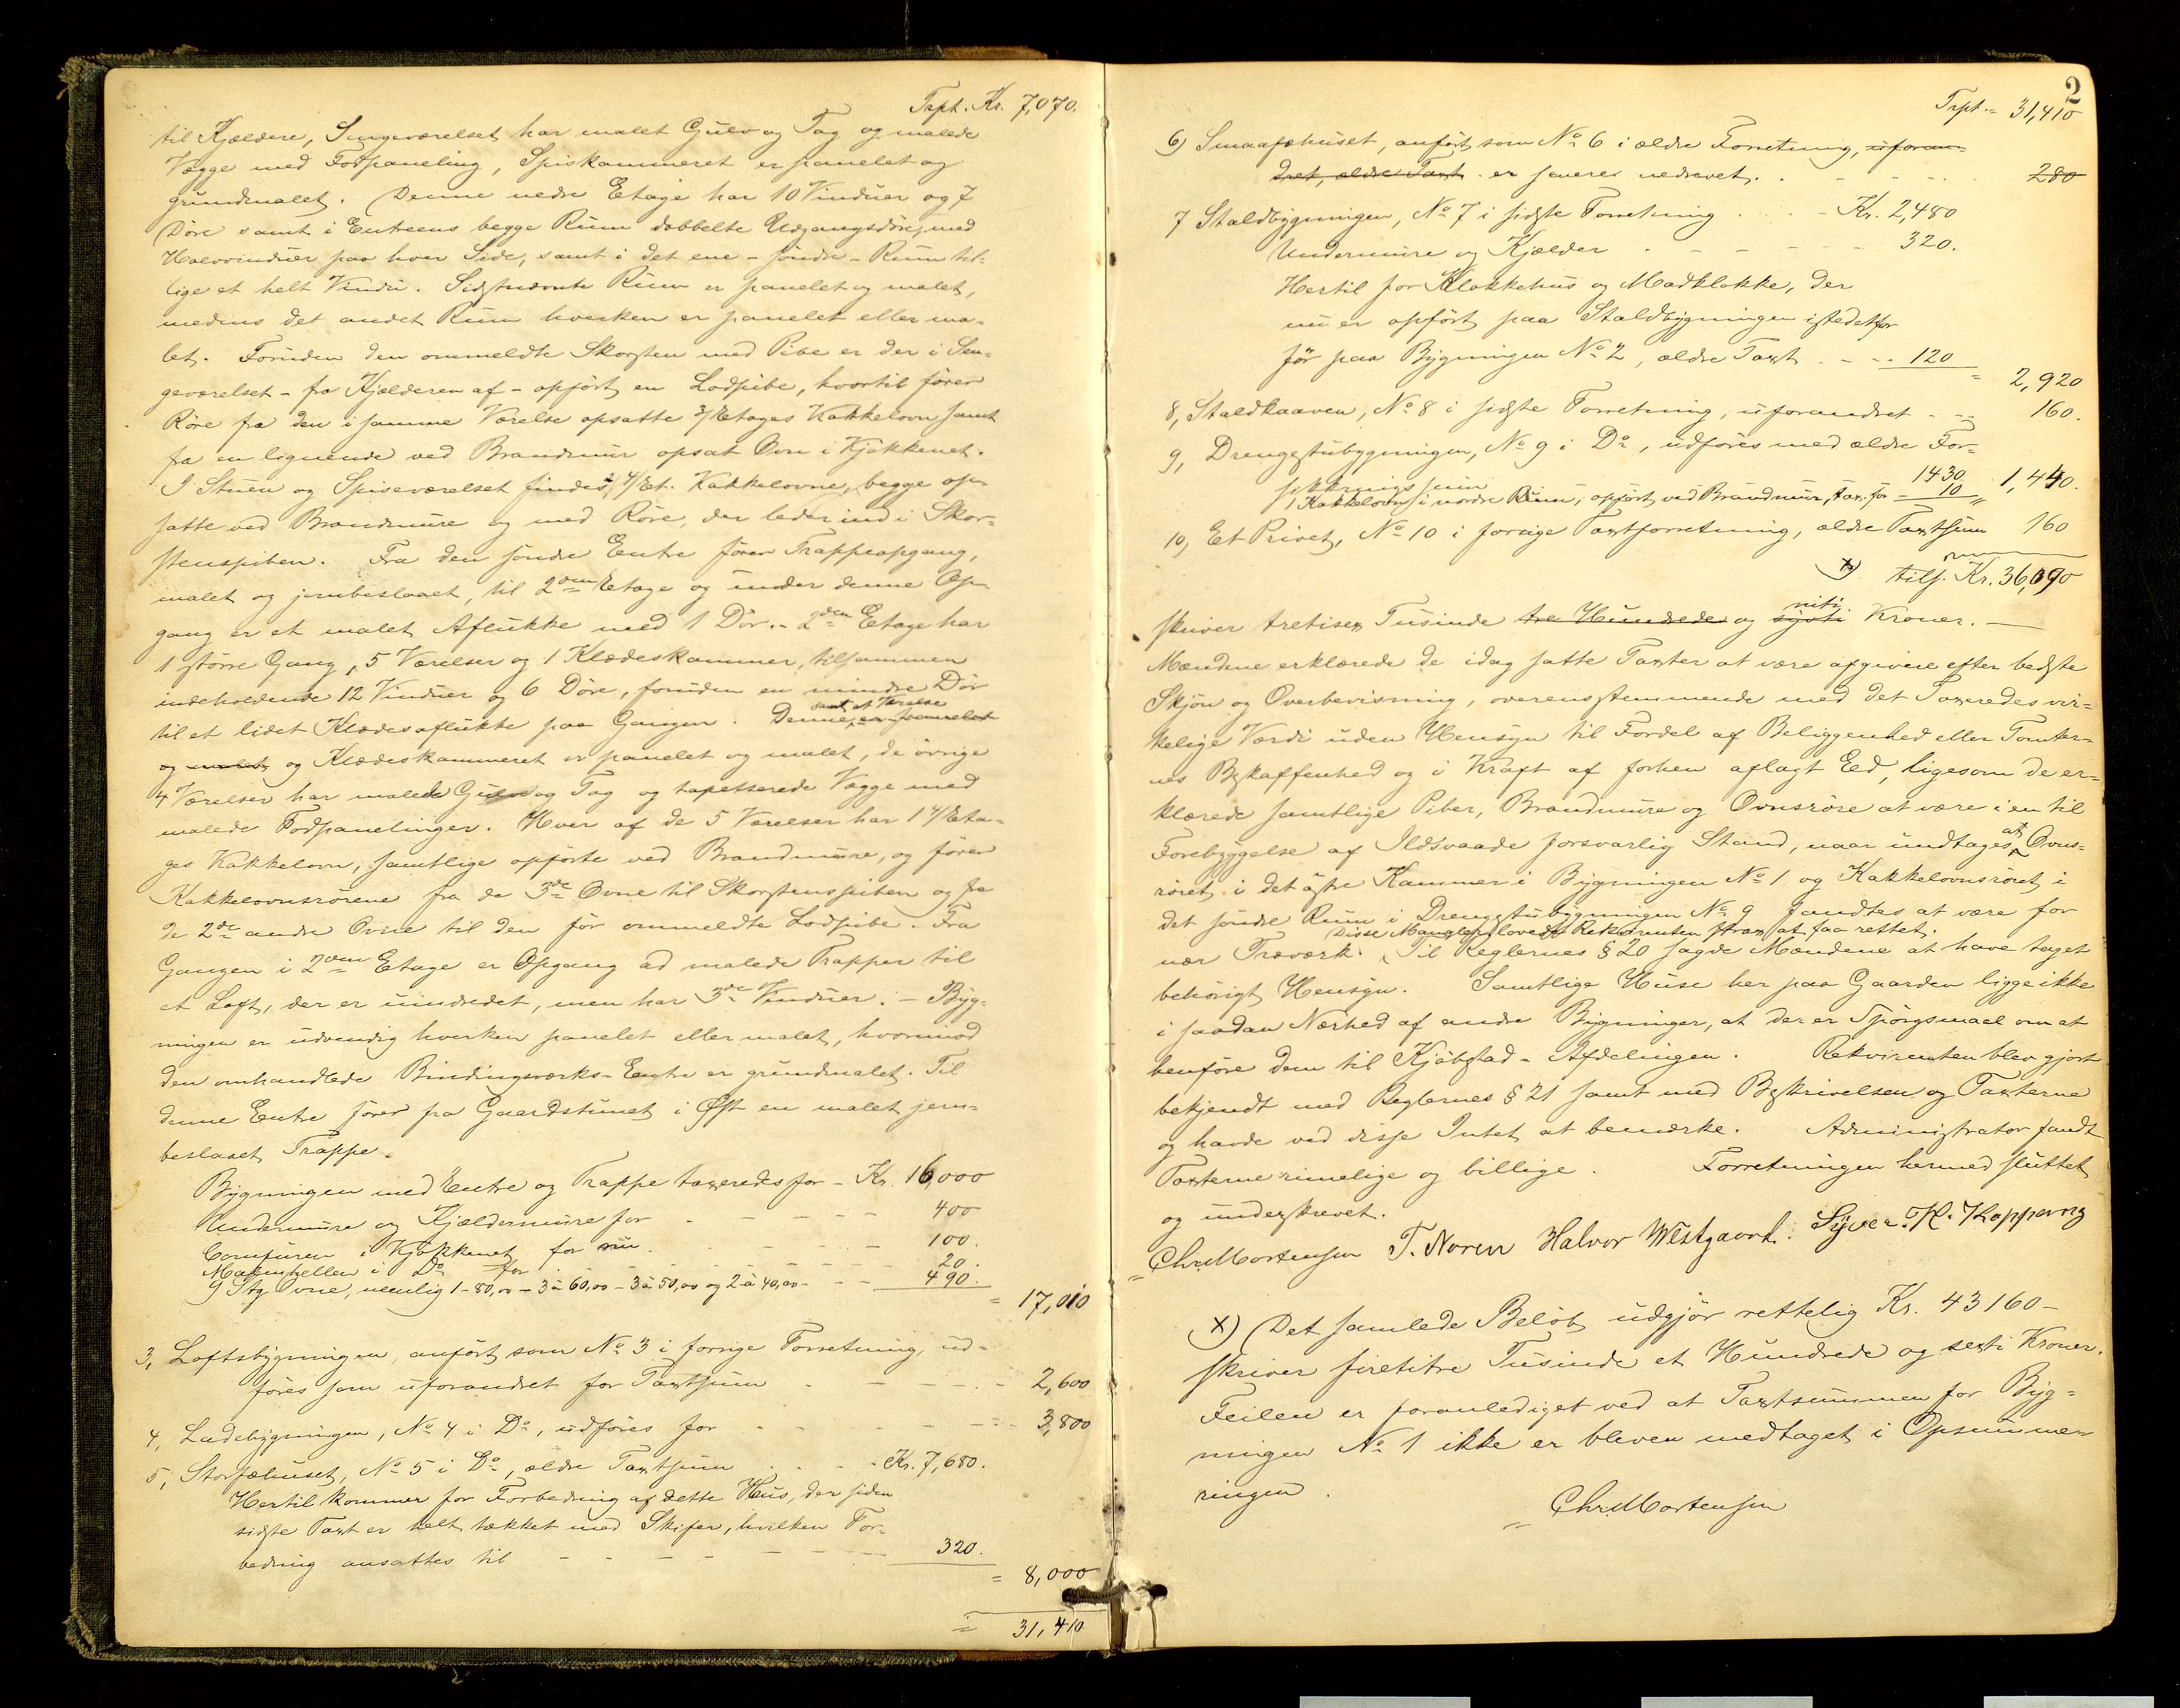 Trpt. Kr. 7,070.
til Kjældere, Sengeværelset har malet Gulv og Tag og malede
Vægge med Fodpaneling, Spiskammeret er panelet og
grundmalet. Denne nedre Etage har 10 Vinduer og 7
Døre samt i Entreens begge Rum dobbelte Udgangsdøre, med
Halvvinduer paa hver Side, samt i det ene - søndre - Rum til-
lige et helt Vindu. Sidstnævnte Rum er panelet og malet,
medens det andet Rum hverken er panelet eller ma-
let. Foruden den ommeldte Skorsten med Pibe er der i Sen-
geværelset - fra Kjælderen af - opført en Lodpibe, hvortil fører
Røre fra den i samme Værelse opsatte 3/Etages Kakkelovn samt
fra en lignende ved Brandmur opsat Ovn i Kjøkkenet.
I Stuen og Spiseværelset findes 2 4/Et. Kakkelovne, begge op-
satte ved Brandmure og med Røre, der leder ind i Skor-
stenspiben. Fra den søndre Entre fører Trappeopgang,
malet og jernbeslaaet, til 2den Etage og under denne Op-
gang er et malet Aflukke med 1 Dør. - 2den Etage har
1 større Gang, 5 Værelser og 1 Klædeskammer, tilsammen
indeholdende 12 Vinduer og 6 Døre, foruden en mindre Dør
til et lidet Klædesaflukke paa Gangen. Denne, samt et Værelse er panelet
og malet og Klædeskammeret er panelet og malet, de øvrige
4 Værelser har malede Gulve og Tag og tapetserede Vægge med
malede Fodpanelinger. Hver af de 5 Værelser har 1 4/Eta-
ges Kakkelovn, samtlige opførte ved Brandmure, og fører
Kakkelovnsrørene fra de 3de Ovne til Skorstenspiben og fra
de 2de andre Ovne til den før ommeldte Lodpibe. Fra
Gangen i 2den Etage er Opgang ad malede Trapper til
et Loft, der er uindredet, men har 3de Vinduer. - Byg-
ningen er udvendig hverken panelet eller malet, hvorimod
den omhandlede Bindingsværks-Entre er grundmalet. Til
denne Entre fører fra Gaardstunet i Øst en malet jern-
beslaaet Trappe.
Bygningen med Entre og Trappe taxeredes for - Kr. 16,000
Undermure og Kjældermure for - - - - - 400
Comfuren i Kjøkkenet for nu - - - - 100.
Magenhellen i Do for - - - - 20.
9 Stg Ovne, nemlig 1 - 80,00 - 3 à 60,00 - 3 à 50,00 og 2 à 40,00 - - - 490.
= 17,010
3, Loftsbygningen, anført som No 3 i forrige Forretning, ud-
føres som uforandret for Taxtsum - - - - 2,600
4, Ladebygningen, No 4 i Do, udføres for - - - - 3,800
5, Storfæhuset, No 5 i Do, ældre Taxtsum - - - Kr. 7,680.
Hertil kommer for Forbedring af dette Hus, der siden
sidste Taxt er helt tækket med Skifer, hvilken For-
bedring ansattes til - - - - - - 320.
= 8,000
= 31,410
2
Trpt. = 31,410
6) Smaafæhuset, anført som No 6 i ældre Forretning, uforan-
dret, ældre Taxt er senere nedrevet. - - - - 280
7 Staldbygningen, No 7 i sidste Forretning - - - Kr. 2,480
Undermure og Kjælder - - - - - 320.
Hertil for Klokkehus og Madklokke, der
nu er opført paa Staldbygningen istedetfor
før paa Bygningen No 2, ældre Taxt - - - 120
= 2,920
8, Staldkaaven, No 8 i sidste Forretning, uforandret - - - 160.
9, Drengestubygningen, No 9 i Do, udføres med ældre For-
sikringssum 1430
1 Kakkelovn i nordre Rum, opført ved Brandmur, tax. for - 10 = 1,440.
10, Et Privet, No 10 i forrige Taxtforretning, ældre Taxtsum 160
x) tils. Kr. 36,090
skriver tretisex Tusinde tre Hundrede og syvti niti Kroner. -
Mændene erklærede de idag satte Taxter at være afgivne efter bedste
Skjøn og Overbevisning, overensstemmende med det Taxeredes vir-
kelige Værdi uden Hensyn til Fordel af Beliggenhed eller Tomter-
nes Beskaffenhed og i Kraft af forhen aflagt Eed, ligesom de er-
klærede samtlige Piber, Brandmure og Ovnsrøre at være i en til
Forebyggelse af Ildsvaade forsvarlig Stand, naar undtages, at Ovns-
røret i det østre Kammer i Bygningen No 1 og Kakkelovnsrøret i
det søndre Rum i Drengestubygningen No 9 fandtes at være for
nær Træværk. Disse Mangler lovede Rekvirenten strax at faa rettet. Til Reglernes § 20 sagde Mændene at have taget
behørigt Hensyn. Samtlige Huse her paa Gaarden ligge ikke
i saadan Nærhed af andre Bygninger, at der er Spørgsmaal om at
henføre dem til Kjøbstad-Afdelingen. Rekvirenten blev gjort
bekjendt med Reglernes § 21 samt med Beskrivelsen og Taxterne
og havde ved disse Intet at bemærke. Administrator fandt
Taxterne rimelige og billige. Forretningen hermed sluttet
og underskrevet.
Chr. Mortensen T. Noren Halvor Westgaard. Syver. K. Koppang
x) Det samlede Beløb udgjør rettelig Kr. 43160 -
skriver firetitre Tusinde et Hundrede og sexti Kroner.
Feilen er foranlediget ved at Taxtsummen for Byg-
ningen No 1 ikke er bleven medtaget i Opsumme-
ringen.
Chr. Mortensen